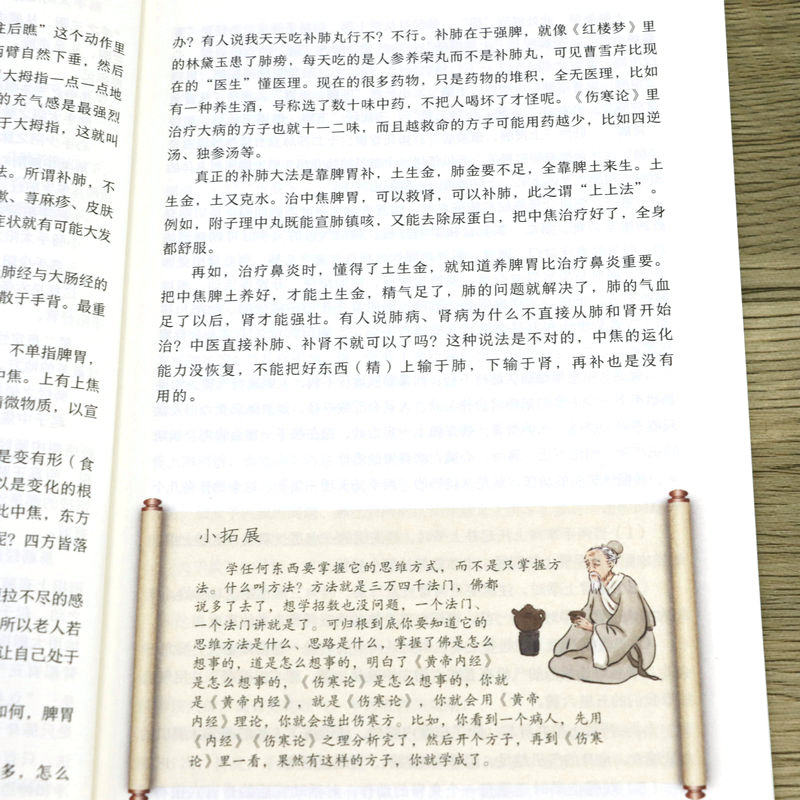 往后瞧”这个动作里
两臂自然下垂，然后
大拇指一点一点地
的充气感是最强烈
于大拇指，这就叫
法。所谓补肺，不
嗽、荨麻疹、皮肤
症状就有可能大发
肺经与大肠经的
散于手背。最重
不单指脾胃，
中焦。上有上焦
精微物质，以宣
是变有形（食
以是变化的根
此中焦，东方
呢？四方皆落
拉不尽的感
所以老人若
让自己处于
如何，脾胃
多，怎么
办？有人说我天天吃补肺丸行不？不行。补肺在于强脾，就像《红楼梦》里
的林黛玉患了肺痨，每天吃的是人参养荣丸而不是补肺丸，可见曹雪芹比现
在的“医生”懂医理。现在的很多药物，只是药物的堆积，全无医理，比如
有一种养生酒，号称选了数十味中药，不把人喝坏了才怪呢。《伤寒论》里
治疗大病的方子也就十一二味，而且越救命的方子可能用药越少，比如四逆
汤、独参汤等。
真正的补肺大法是靠脾胃补，土生金，肺金要不足，全靠脾土来生。土
生金，土又克水。治中焦脾胃，可以救肾，可以补肺，此之谓“上上法”。
例如，附子理中丸既能宣肺镇咳，又能去除尿蛋白，把中焦治疗好了，全身
都舒服。
再如，治疗鼻炎时，懂得了土生金，就知道养脾胃比治疗鼻炎重要。
把中焦脾土养好，才能土生金，精气足了，肺的问题就解决了，肺的气血
足了以后，肾才能强壮。有人说肺病、肾病为什么不直接从肺和肾开始
治？中医直接补肺、补肾不就可以了吗？这种说法是不对的，中焦的运化
能力没恢复，不能把好东西（精）上输于肺，下输于肾，再补也是没有
用的。
小拓展
学任何东西要掌握它的思维方式，而不是只掌握方
法。什么叫方法？方法就是三万四千法门，佛都
说多了去了，想学招数也没问题，一个法门、
一个法门讲就是了。可归根到底你要知道它的
思维方法是什么、思路是什么，掌握了佛是怎么
想事的，道是怎么想事的，明白了《黄帝内经》
是怎么想事的，《伤寒论》是怎么想事的，你就
是《黄帝内经》，就是《伤寒论》，你就会用《黄帝
内经》理论，你就会造出伤寒方。比如，你看到一个病人，先用
《内经》《伤寒论》之理分析完了，然后开个方子，再到《伤寒
论》里一看，果然有这样的方子，你就学成了。